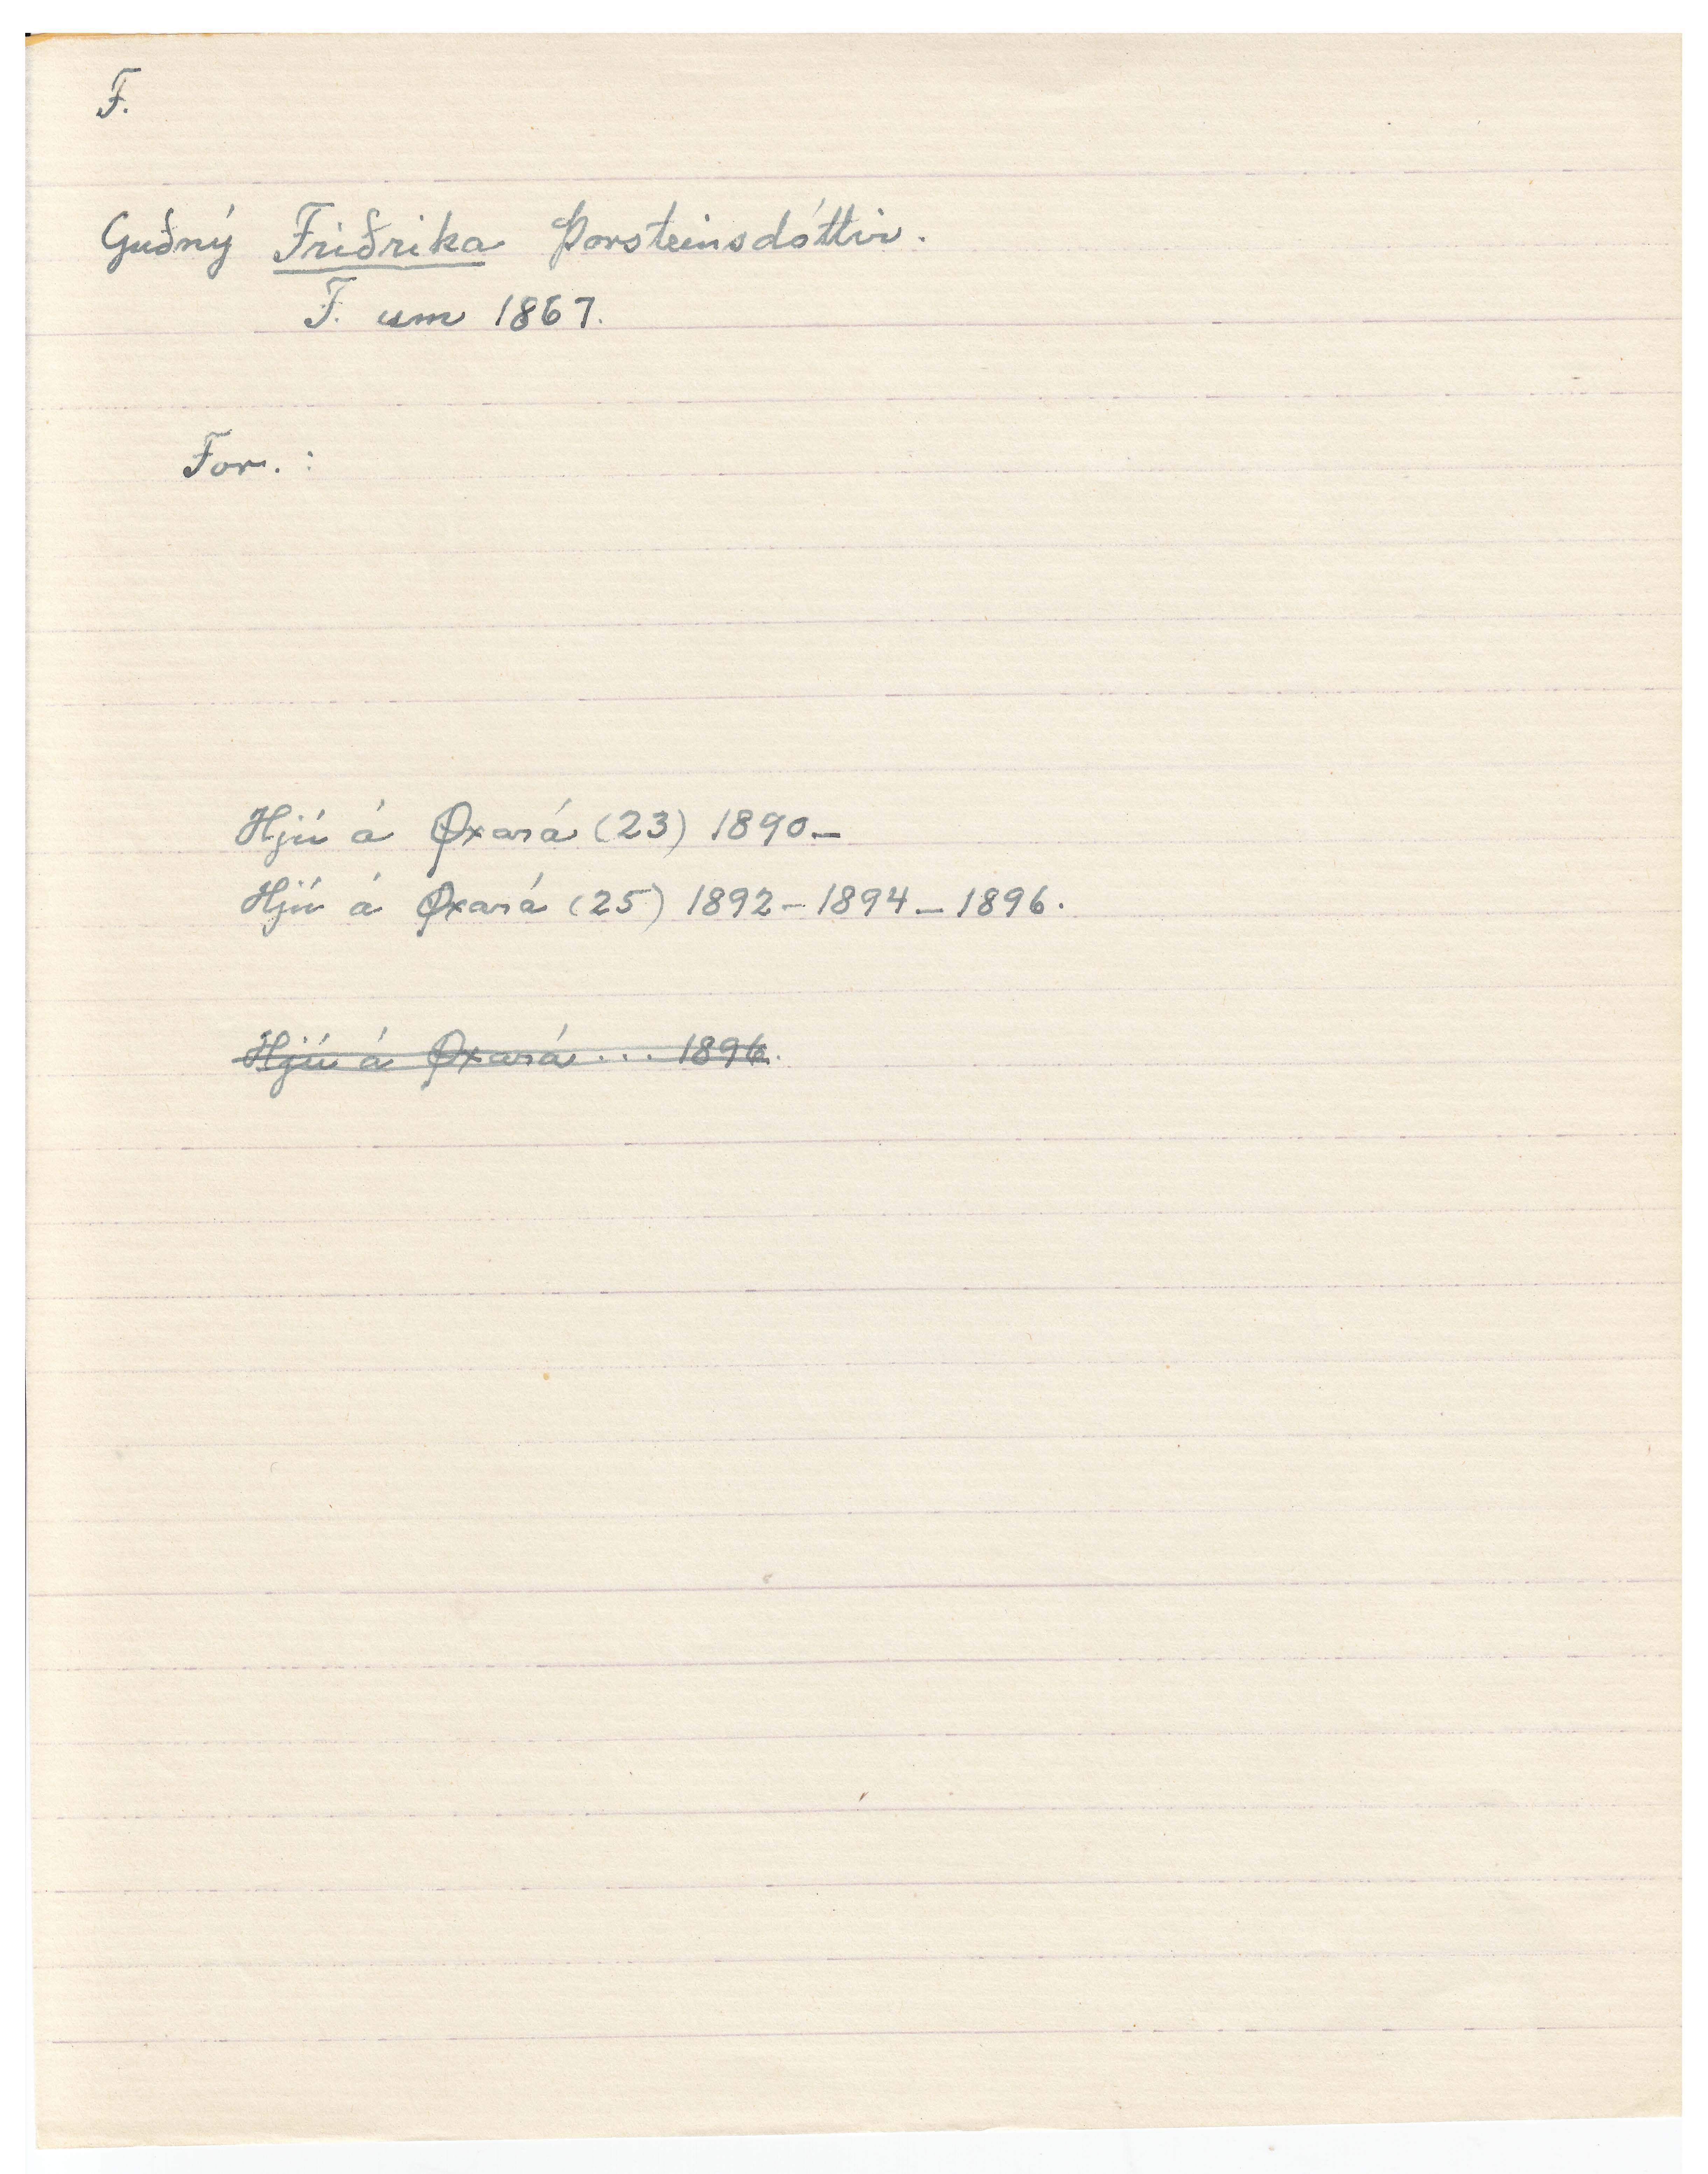 F.
Guðný Friðrika Þorsteinsdóttir.
F. um 1867.
For. :
Hjú á Øxará (23) 1890 –
Hjú á Øxará (25) 1892 – 1894 – 1896.
Hjú á Øxará . . . 1896.